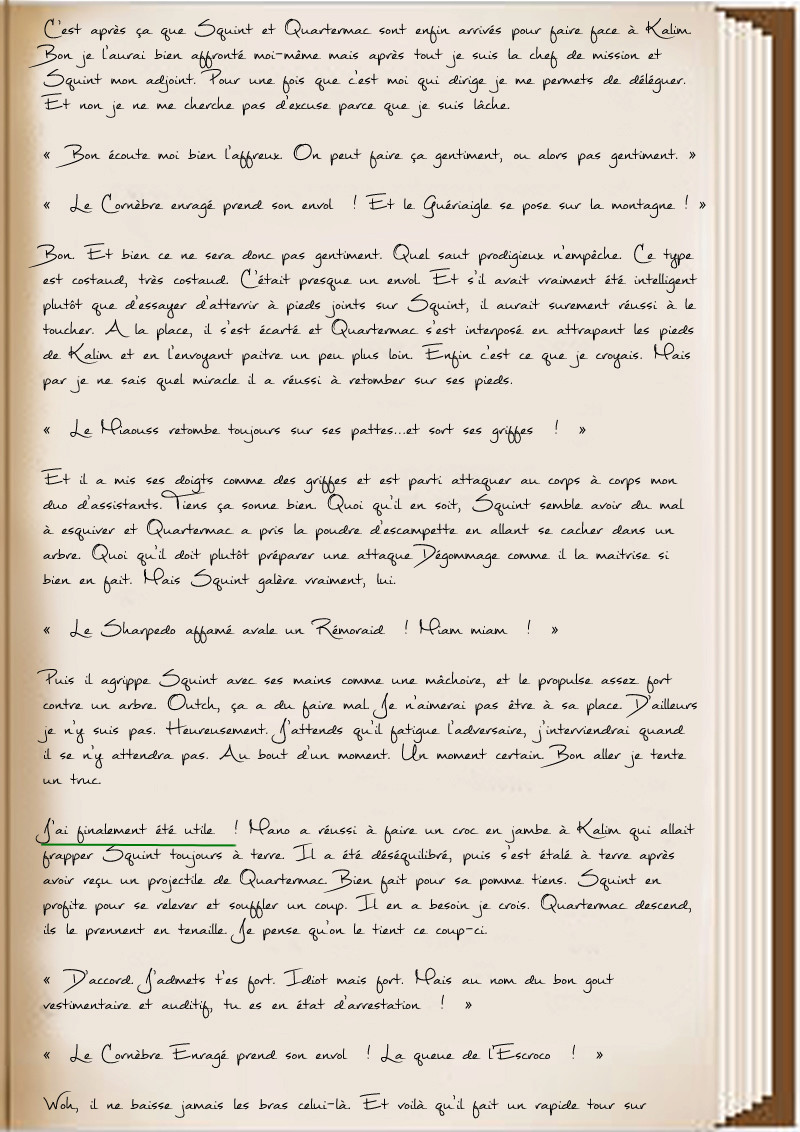 C'est après ça que Squint et Quartermac sont enfin arrivés pour faire face à Kalim.
Bon je l'aurai bien affronté moi-même mais après tout je suis la chef de mission et
Squint mon adjoint. Pour une fois que c'est moi qui dirige je me permets de déléguer.
Et non je ne me cherche pas d'excuse parce que je suis lâche.
« Bon écoute moi bien l'affreux. On peut faire ça gentiment, ou alors pas gentiment. »
« Le Cornèbre enragé prend son envol ! Et le Guériaigle se pose sur la montagne ! »
Bon. Et bien ce ne sera donc pas gentiment. Quel saut prodigieux n'empêche. Ce type
est costaud, très costaud. C'était presque un envol. Et s'il avait vraiment été intelligent
plutôt que d'essayer d'atterrir à pieds joints sur Squint, il aurait surement réussi à le
toucher. A la place, il s'est écarté et Quartermac s'est interposé en attrapant les pieds
de Kalim et en l'envoyant paitre un peu plus loin. Enfin c'est ce que je croyais. Mais
par je ne sais quel miracle il a réussi à retomber sur ses pieds.
« Le Miaouss retombe toujours sur ses pattes...et sort ses griffes ! »
Et il a mis ses doigts comme des griffes et est parti attaquer au corps à corps mon
duo d'assistants. Tiens ça sonne bien. Quoi qu'il en soit, Squint semble avoir du mal
à esquiver et Quartermac a pris la poudre d'escampette en allant se cacher dans un
arbre. Quoi qu'il doit plutôt préparer une attaque Dégommage comme il la maitrise si
bien en fait. Mais Squint galère vraiment, lui.
« Le Sharpedo affamé avale un Rémoraid ! Miam miam ! »
Puis il agrippe Squint avec ses mains comme une mâchoire, et le propulse assez fort
contre un arbre. Outch, ça a du faire mal. Je n'aimerai pas être à sa place. D'ailleurs
je n'y suis pas. Heureusement. J'attends qu'il fatigue l'adversaire, j'interviendrai quand
il se n'y attendra pas. Au bout d'un moment. Un moment certain. Bon aller je tente
un truc.
J'ai finalement été utile ! Mano a réussi à faire un croc en jambe à Kalim qui allait
frapper Squint toujours à terre. Il a été déséquilibré, puis s'est étalé à terre après
avoir reçu un projectile de Quartermac. Bien fait pour sa pomme tiens. Squint en
profite pour se relever et souffler un coup. Il en a besoin je crois. Quartermac descend,
ils le prennent en tenaille. Je pense qu'on le tient ce coup-ci.
« D'accord. J'admets t'es fort. Idiot mais fort. Mais au nom du bon gout
vestimentaire et auditif, tu es en état d'arrestation ! »
« Le Cornèbre Enragé prend son envol ! La queue de l'Escroco ! »
Woh, il ne baisse jamais les bras celui-là. Et voilà qu'il fait un rapide tour sur